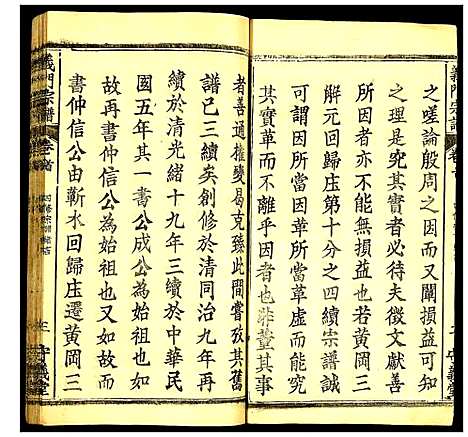 義門宗譜
之嗟論殷周之因而又闡損益可知
之理是究其實者必待夫徵文獻善
所因者亦不能無損益也若黃岡金
紳元回歸庄第十分之四續宗譜誠
可謂因所當因革所當革矣然究
其實革而不離乎因者也非豐其事
者善通權變曷克臻此間嘗攷其舊
譜已三續矣創修於清同治九年再
續於清光緒十九年三續於中華民
國五年其一書公成公為始祖也如
故再書仲信公為始祖也又如故而
書仲信公由蘄水回歸庄遷黃岡三
義門宗譜
卷首
守義堂